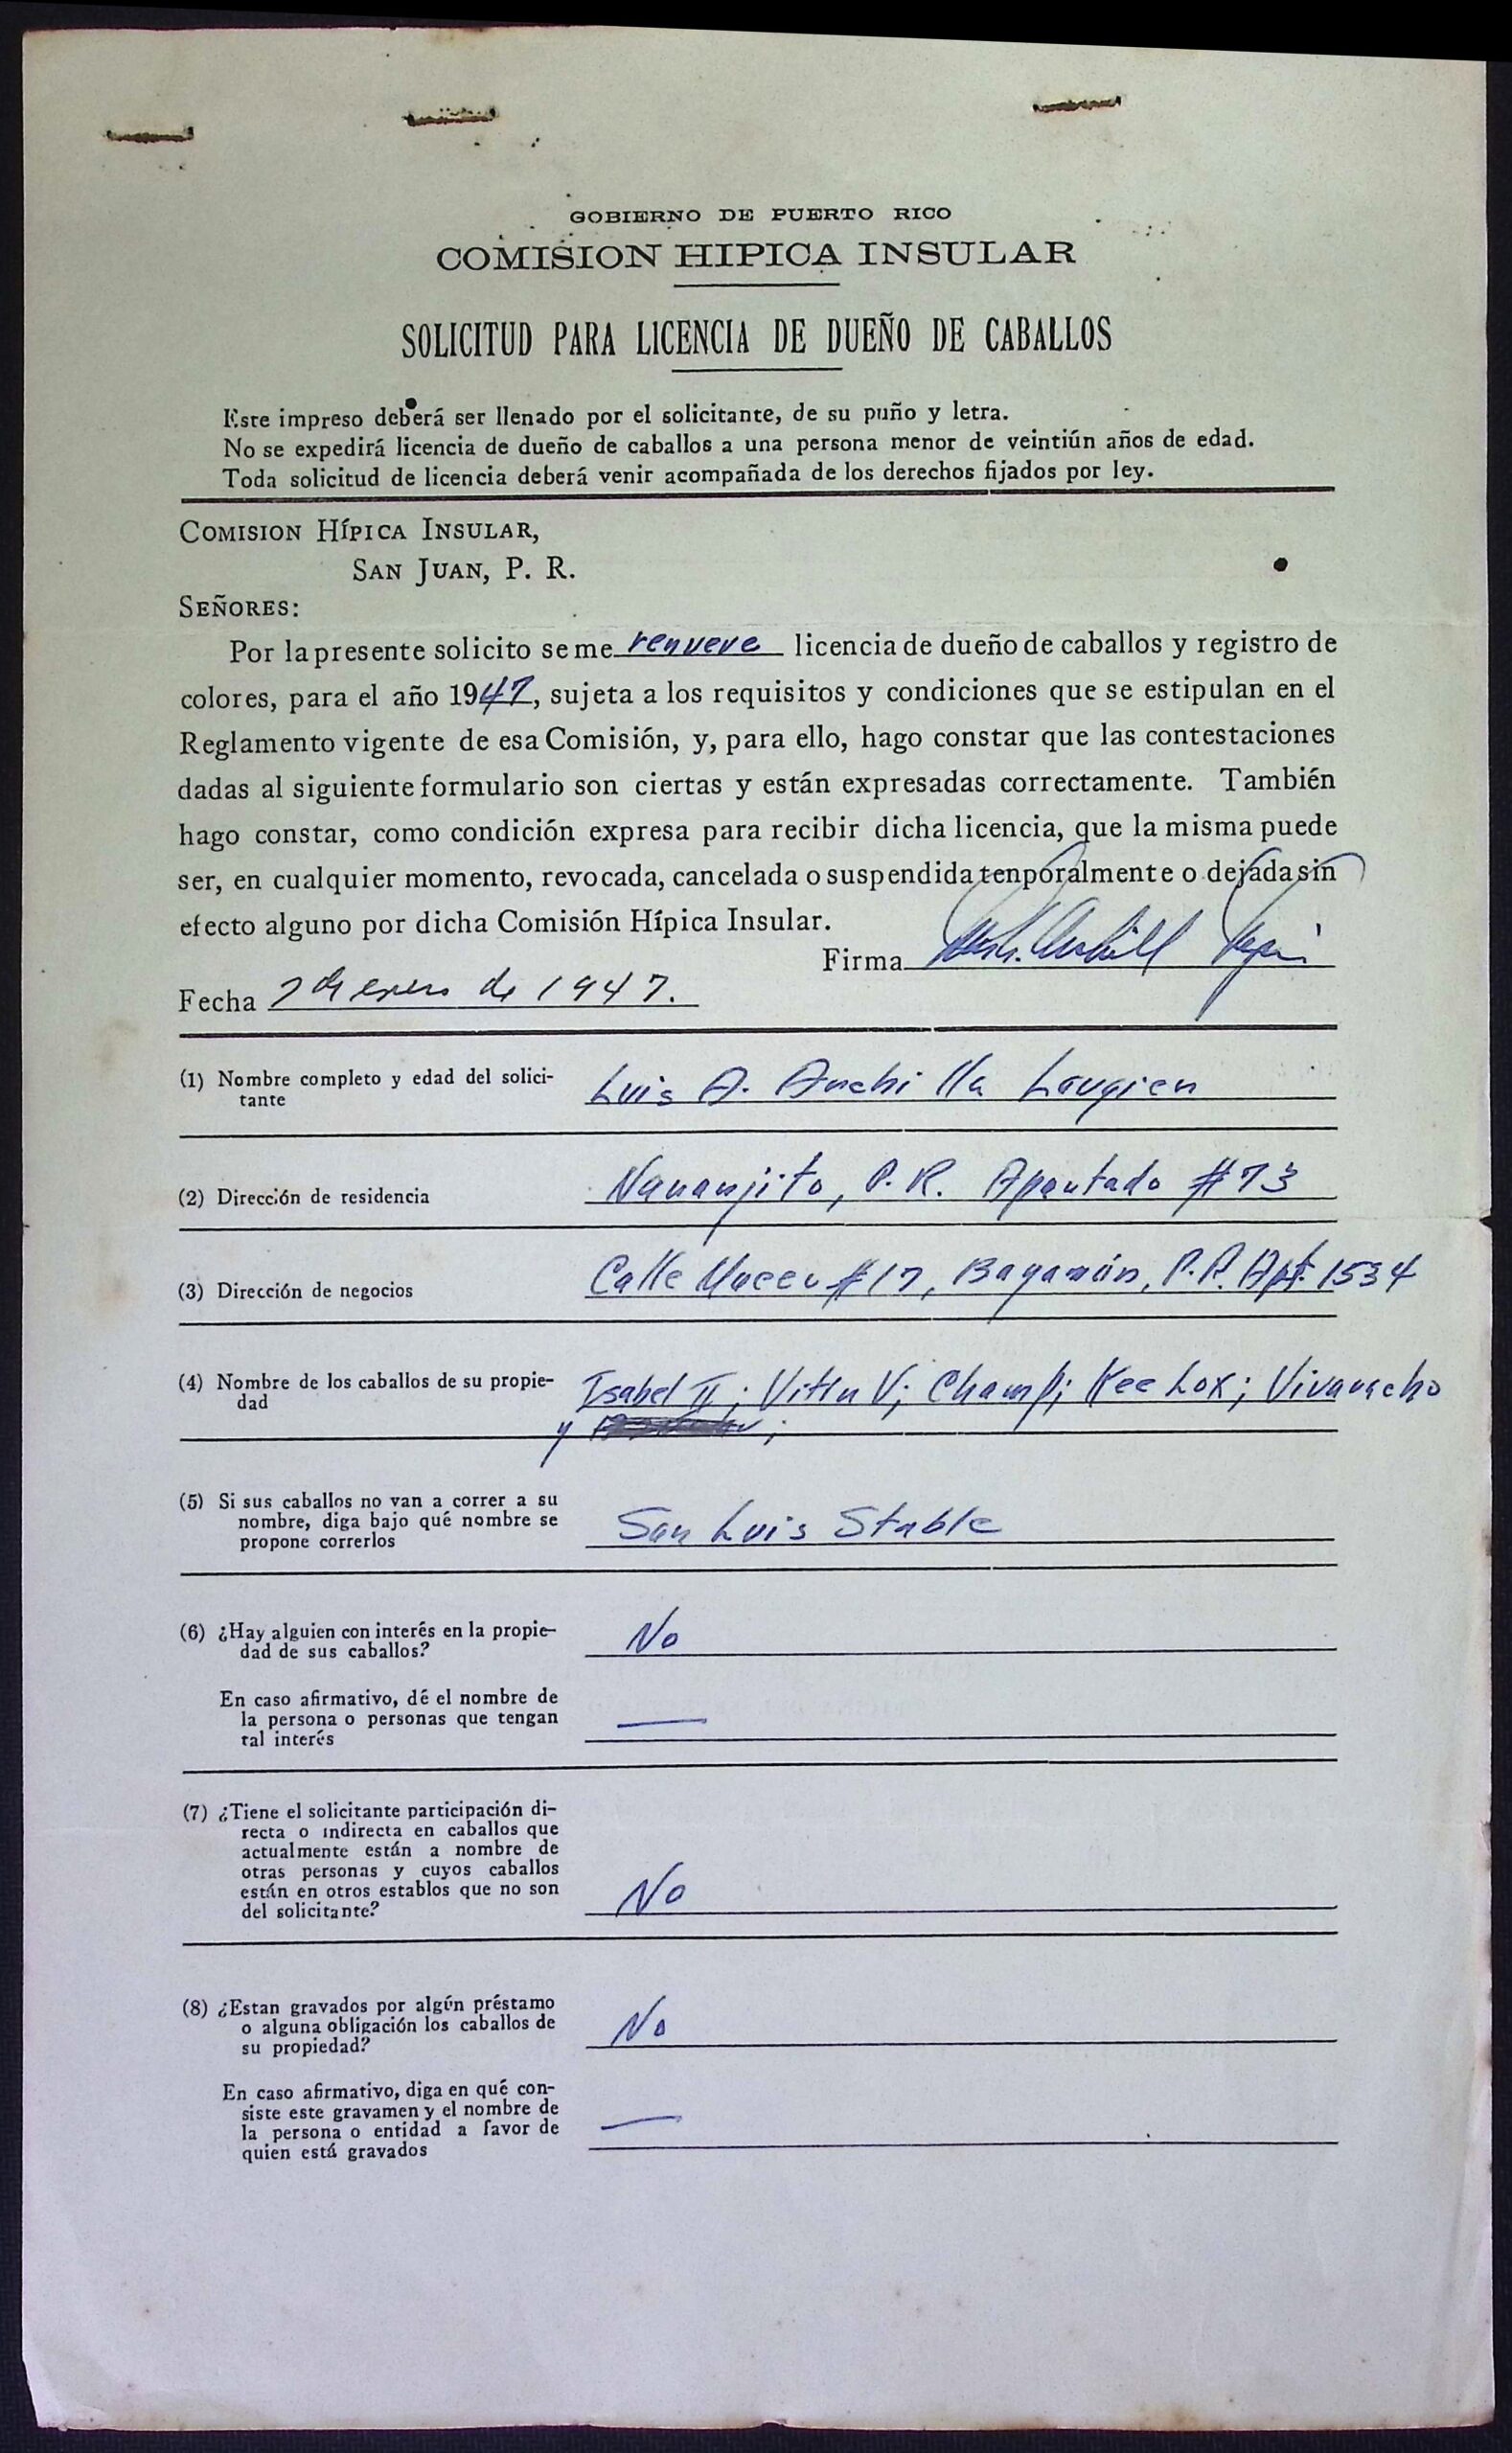 GOBIERNO DE PUERTO RICO
COMISION HIPICA INSULAR
SOLICITUD PARA LICENCIA DE DUEÑO DE CABALLOS
Este impreso deberá ser llenado por el solicitante, de su puño y letra.
No se expedirá licencia de dueño de caballos a una persona menor de veintiún años de edad.
Toda solicitud de licencia deberá venir acompañada de los derechos fijados por ley.
COMISION HÍPICA INSULAR,
SAN JUAN, P. R.
SEÑORES:
Por la presente solicito se me renueve licencia de dueño de caballos y registro de
colores, para el año 1947, sujeta a los requisitos y condiciones que se estipulan en el
Reglamento vigente de esa Comisión, y, para ello, hago constar que las contestaciones
dadas al siguiente formulario son ciertas y están expresadas correctamente. También
hago constar, como condición expresa para recibir dicha licencia, que la misma puede
ser, en cualquier momento, revocada, cancelada o suspendida tenporalmente o dejada sin
efecto alguno por dicha Comisión Hípica Insular.
Firma
Fecha 2 de enero de 1947.
(1) Nombre completo y edad del solici- Luis A. Archilla Laugier
tante
(2) Dirección de residencia Naranjito, P. R. Apartado #73
(3) Dirección de negocios Calle Maceo #17, Bayamón, P.R. Apt. 1534
(4) Nombre de los caballos de su propie- Isabel II; V; Champ; Kee Lox; Vivaracho
dad y
(5) Si sus caballos no van a correr a su
nombre, diga bajo qué nombre se San Luis Stable
propone correrlos
(6) ¿Hay alguien con interés en la propie- No
dad de sus caballos?
En caso afirmativo, dé el nombre de
la persona o personas que tengan —
tal interés
(7) ¿Tiene el solicitante participación di-
recta o indirecta en caballos que
actualmente están a nombre de
otras personas y cuyos caballos
están en otros establos que no son No
del solicitante?
(8) ¿Estan gravados por algún préstamo
o alguna obligación los caballos de No
su propiedad?
En caso afirmativo, diga en qué con-
siste este gravamen y el nombre de
la persona o entidad a favor de —
quien está gravados